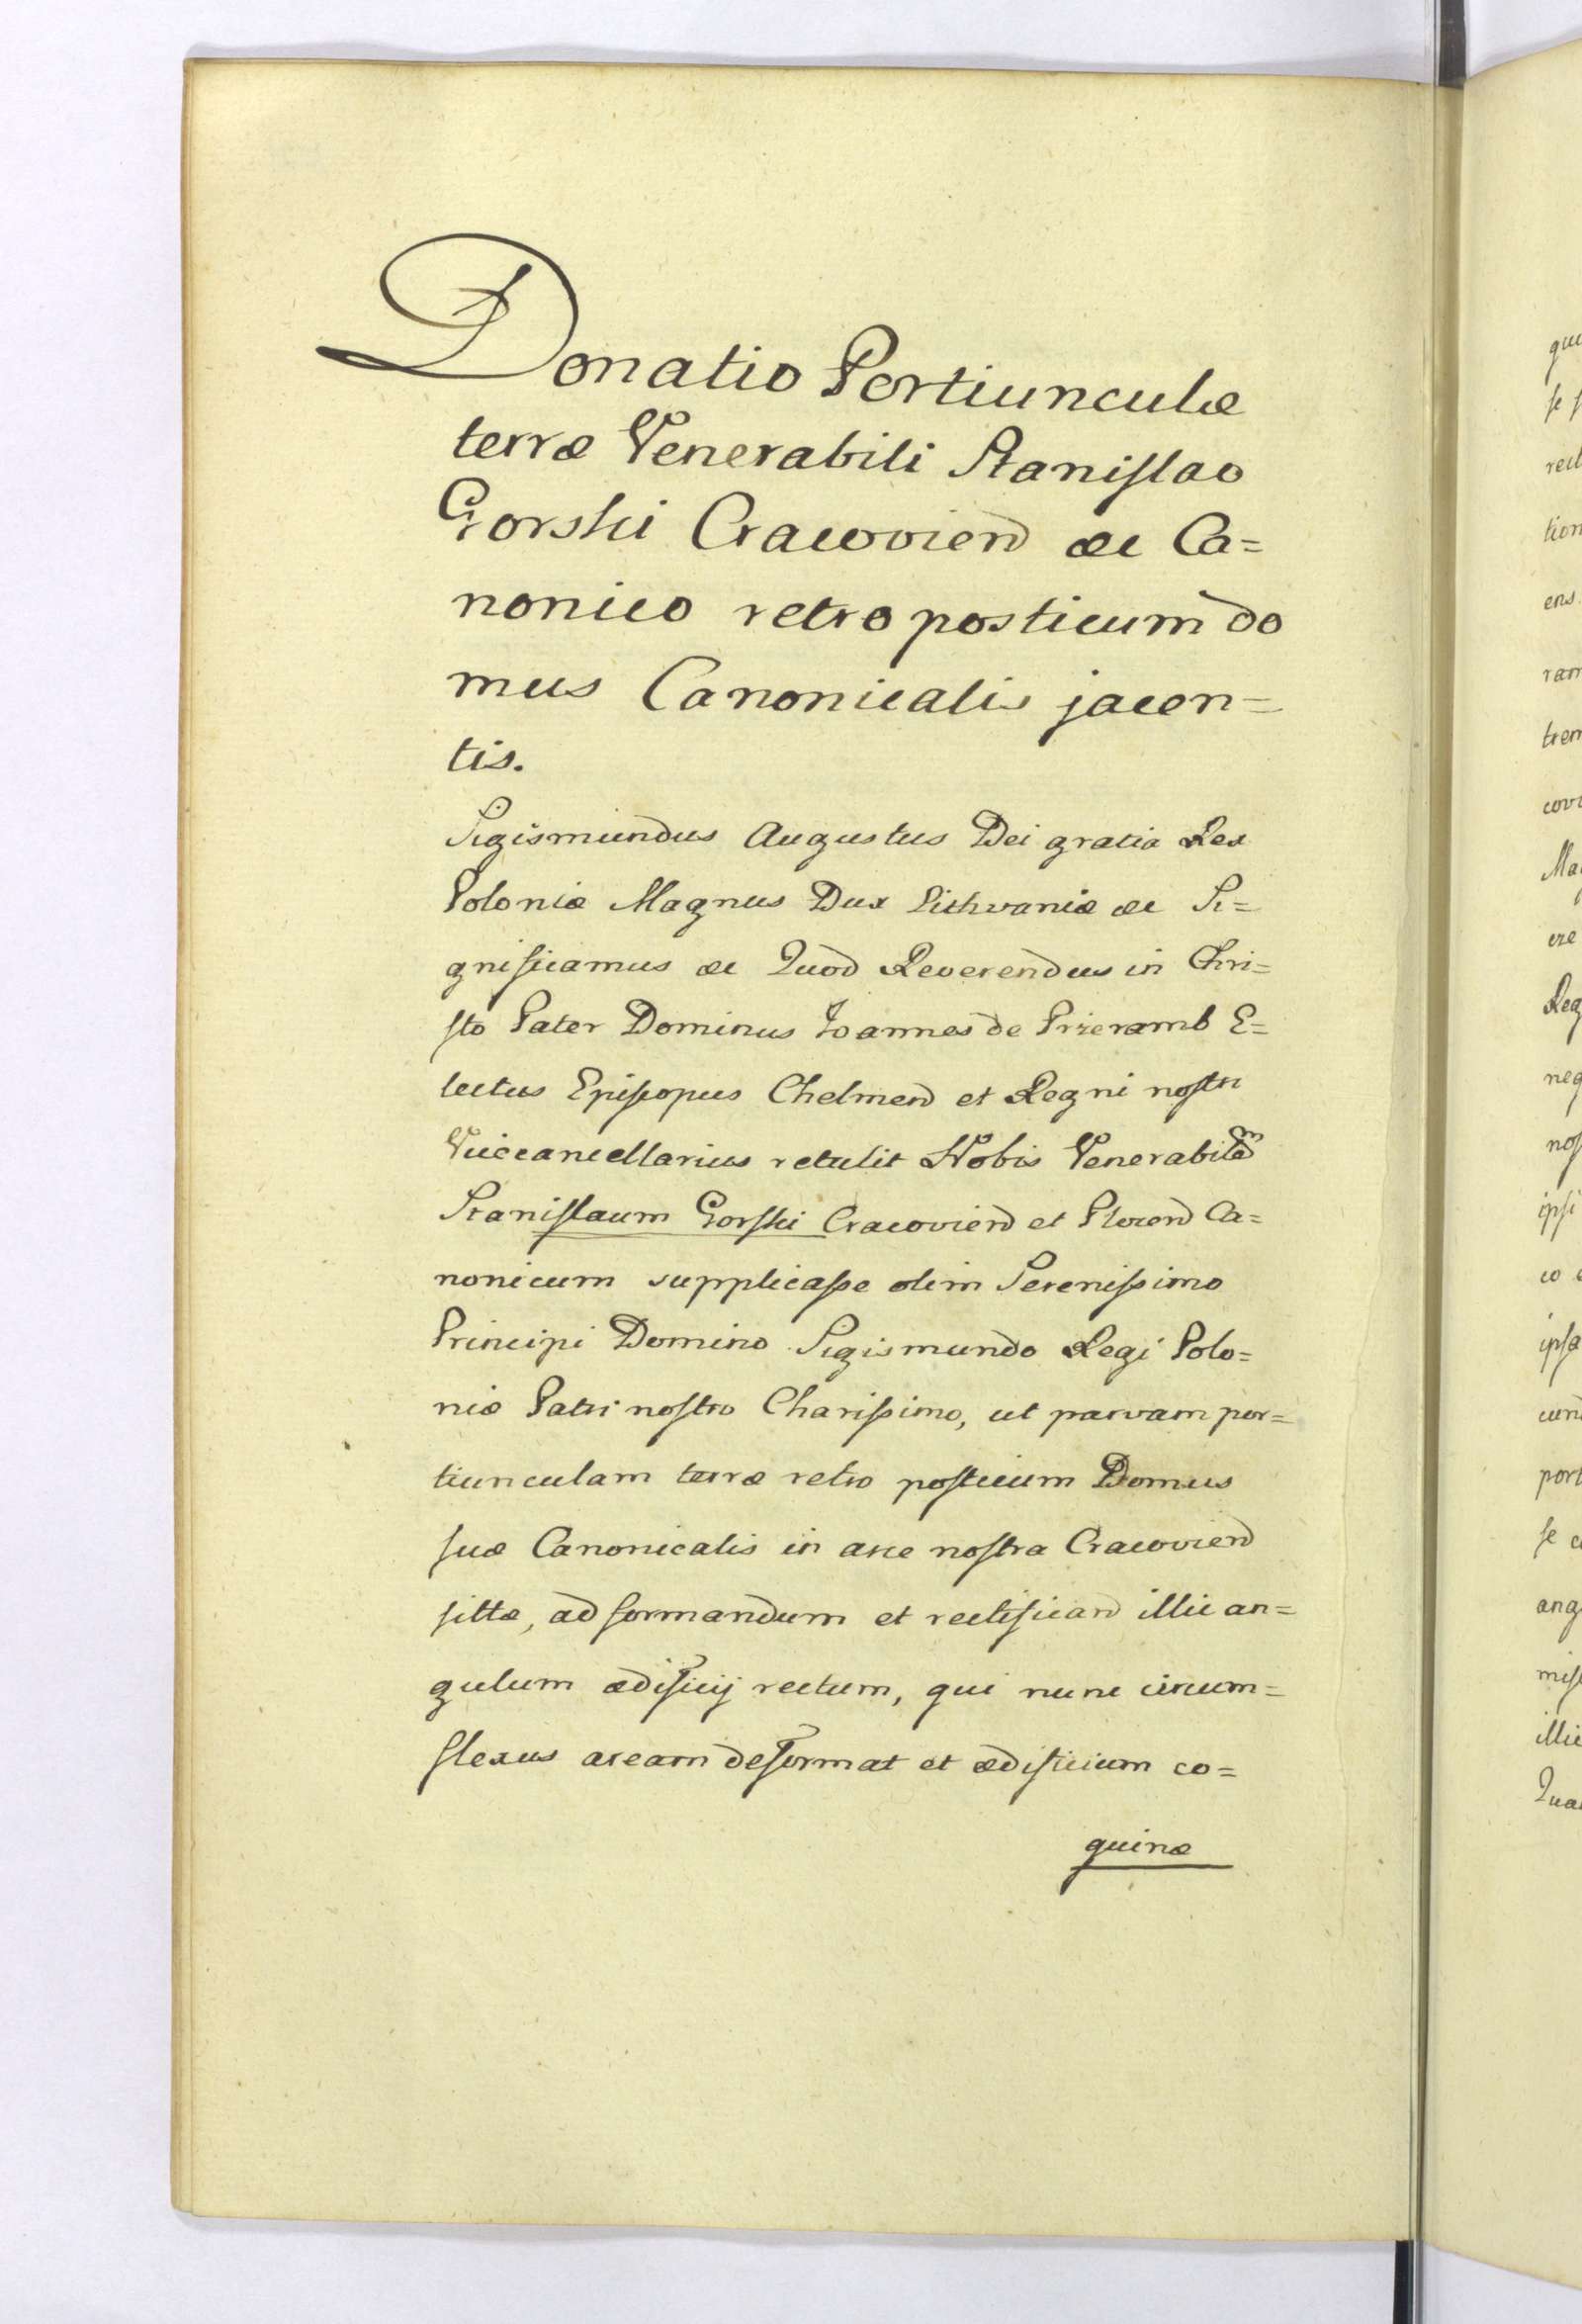 Donatio Portiunculæ
terræ Venerabili Stanislao
Gorski Cracovien̄ æc Ca=
nonico retro posticum do
mus Canonicalis jacen=
tis.
Sigismundus Augustus Dei gratia Rex
Poloniæ Magnus Dux Lithvaniæ æc Si=
gnificamus æc Quod Reverendus in Chri=
sto Pater Dominus Joannes de Prżeramb E=
lectus Episcopus Chelmen̄ et Regni nostri
Vicecancellarius retulit Nobis Venerabilem
Stanislaum Gorski Cracovien̄ et Plocen̄ Ca=
nonicum supplicasse olim Serenissimo
Principi Domino Sigismundo Regi Polo=
niæ Patri nostro Charissimo, ut parvam por=
tiunculam terræ retro posticum Domus
suæ Canonicalis in arce nostra Cracovien̄
sittæ, ad formandum et rectifican̄ illic an=
gulum ædificij rectum, qui nunc circum=
flexus aream deformat et ædificium co=
quinæ